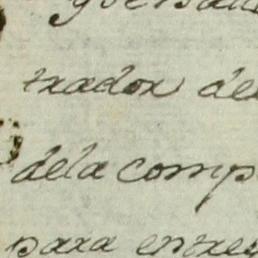 trador del
dela comp
para entre